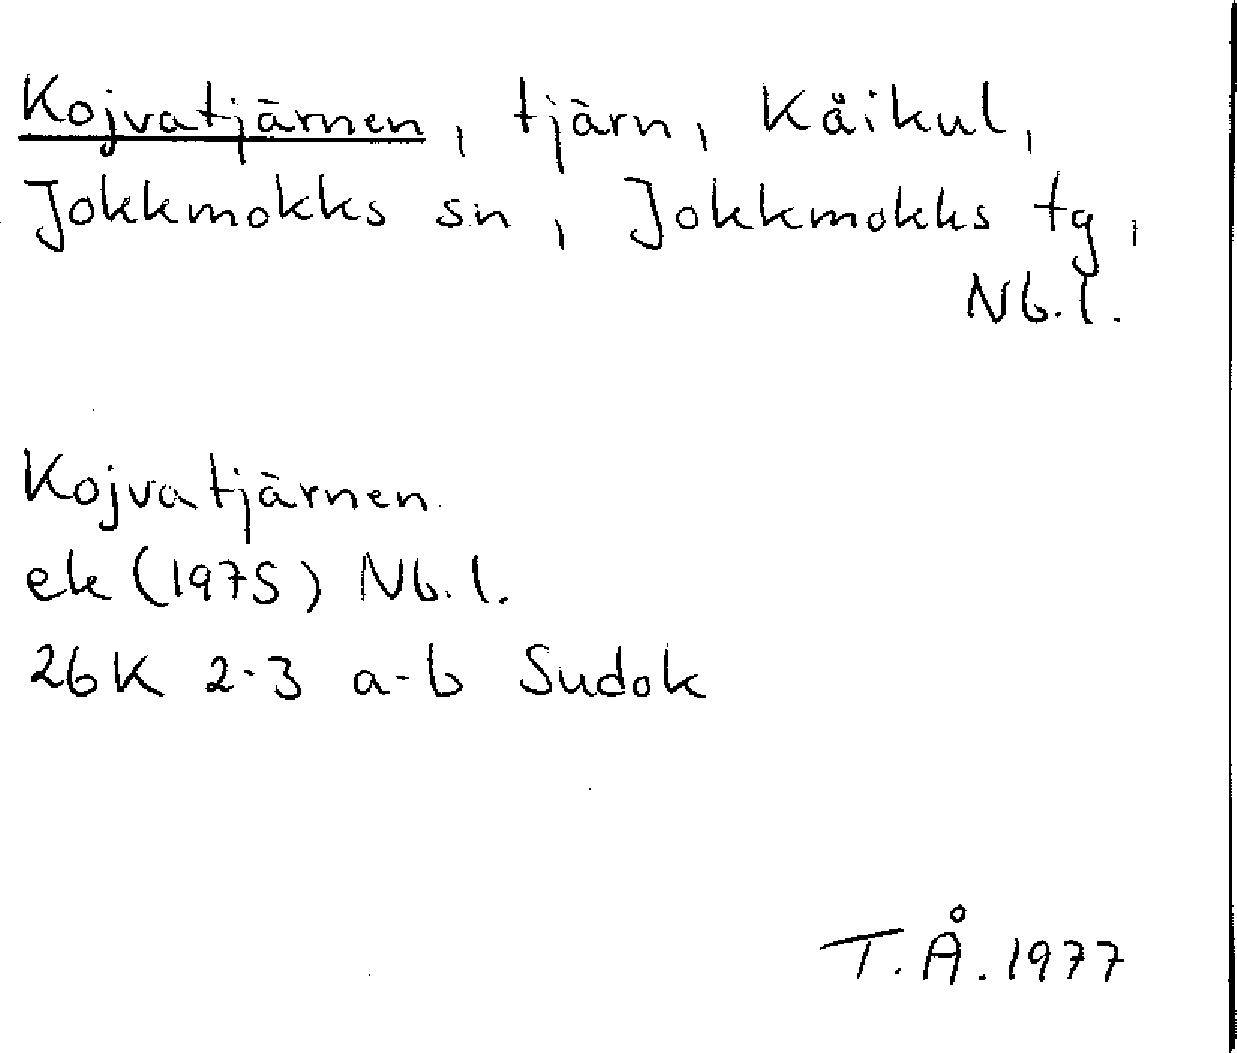 Kojvatjärnen, tjärn, Kåikul,
Jokkmokks sn, Jokkmokks tg,
Nb.l.
Kojvatjärnen.
ek (1975) Nb.l.
26K 2-3 a-b Sudok
T.Å.1977